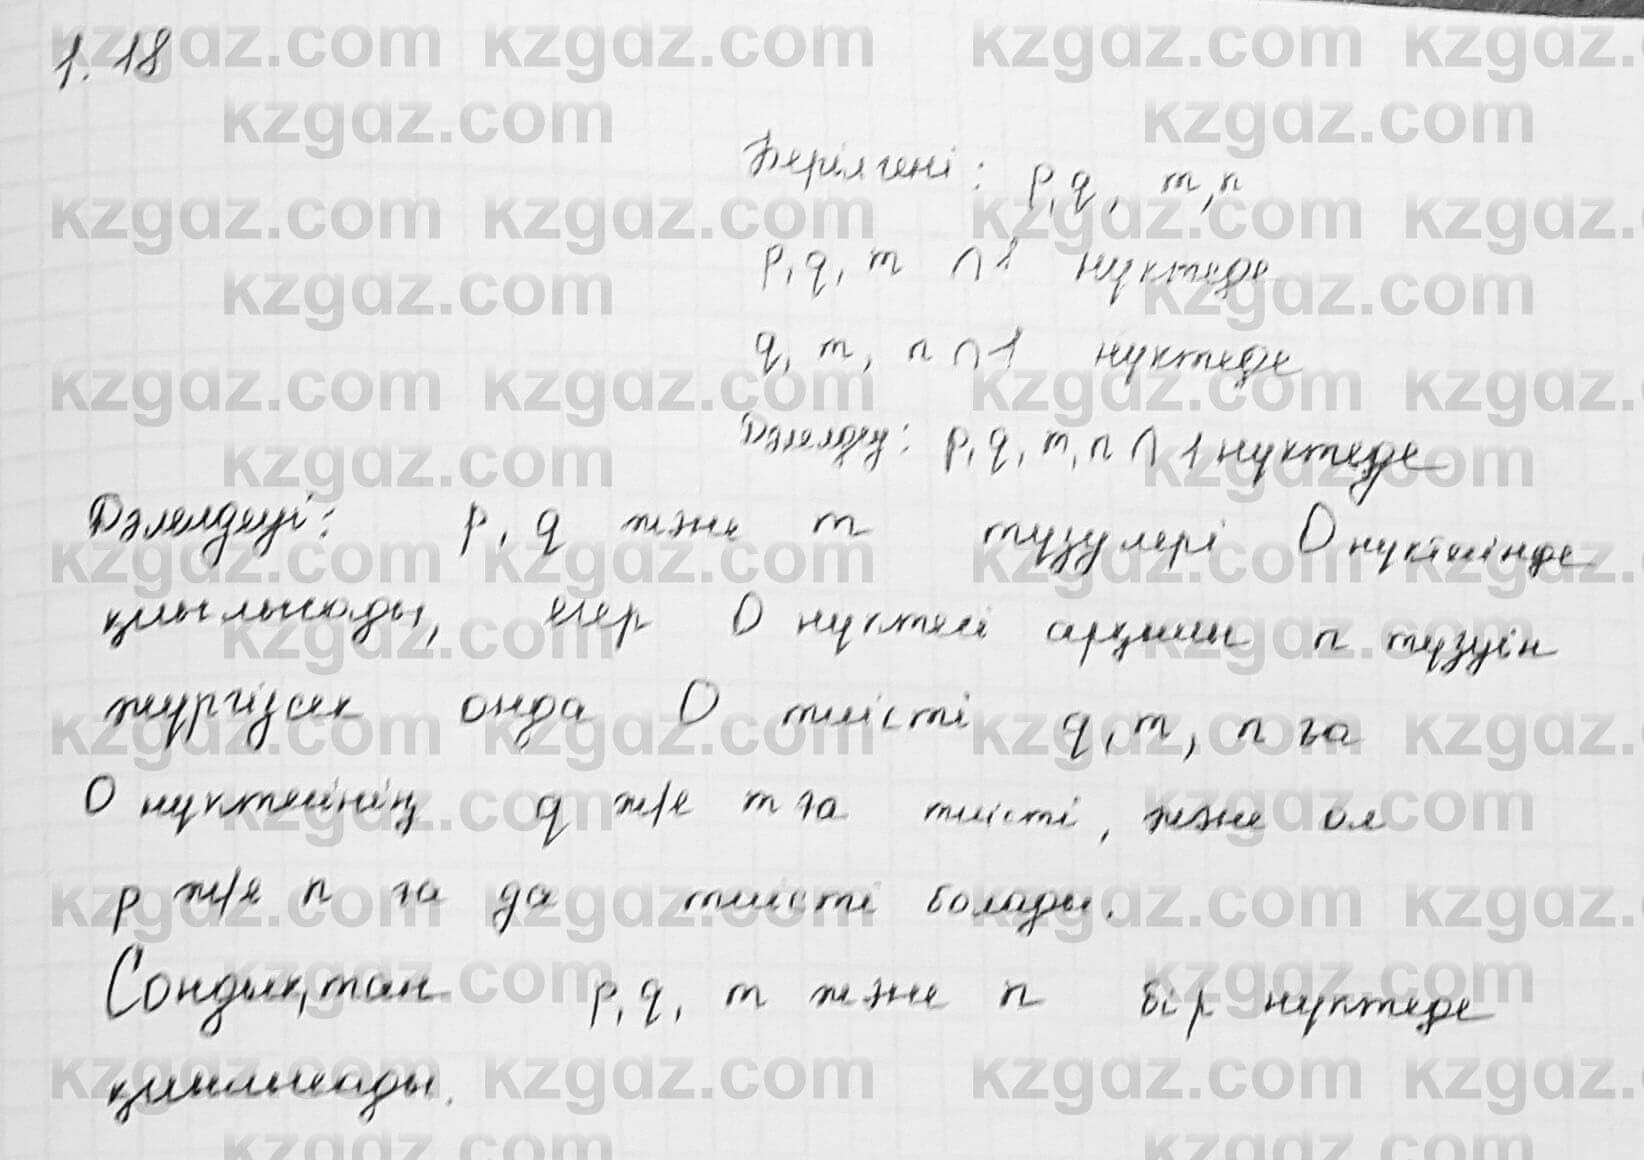 1.18
Берілгені: p, q, m, n
p, q, m ∩ 1 нүктеде
q, m, n ∩ 1 нүктеде
Дәлелдеу: p, q, m, n ∩ 1 нүктеде
Дәлелдеуі: p, q және m түзулері O нүктесінде
қиылысады, егер O нүктесі арқылы n түзуін
жүргізсек онда O тиісті q, m, n ға
O нүктесінің q ж/е m ға тиісті, және ол
p ж/е n ға да тиісті болады.
Сондықтан p, q, m және n бір нүктеде
қиылысады.
kzgaz.com